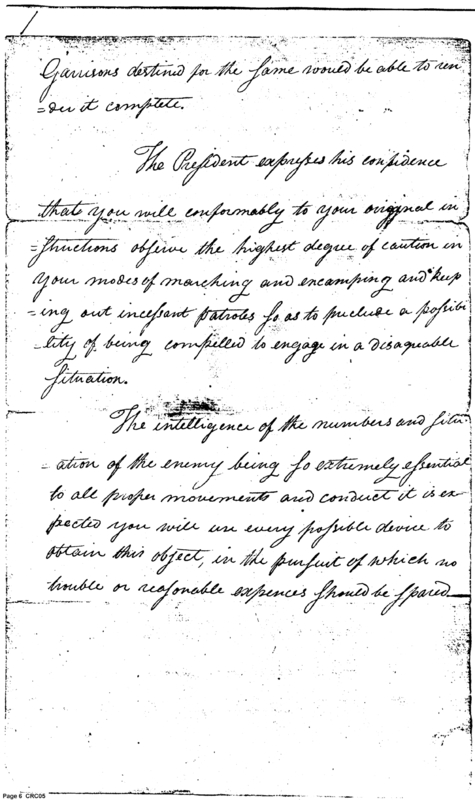 Garrisons destined for the same would be able to ren
=der it complete.
The President expresses his confidence
that you will conformably to your original in
=structions observe the highest degree of caution in
your modes of marching and encamping and keep
=ing out incessant patroles so as to preclude a possibi
=lity of being compelled to engage in a disagreable
situation.
The intelligence of the numbers and situ
=ation of the enemy being so extremely essential
to all proper movements and conduct it is ex
pected you will use every possible device to
obtain this object, in the pursuit of which no
trouble or reasonable expences should be spared
Page 6 CRC05